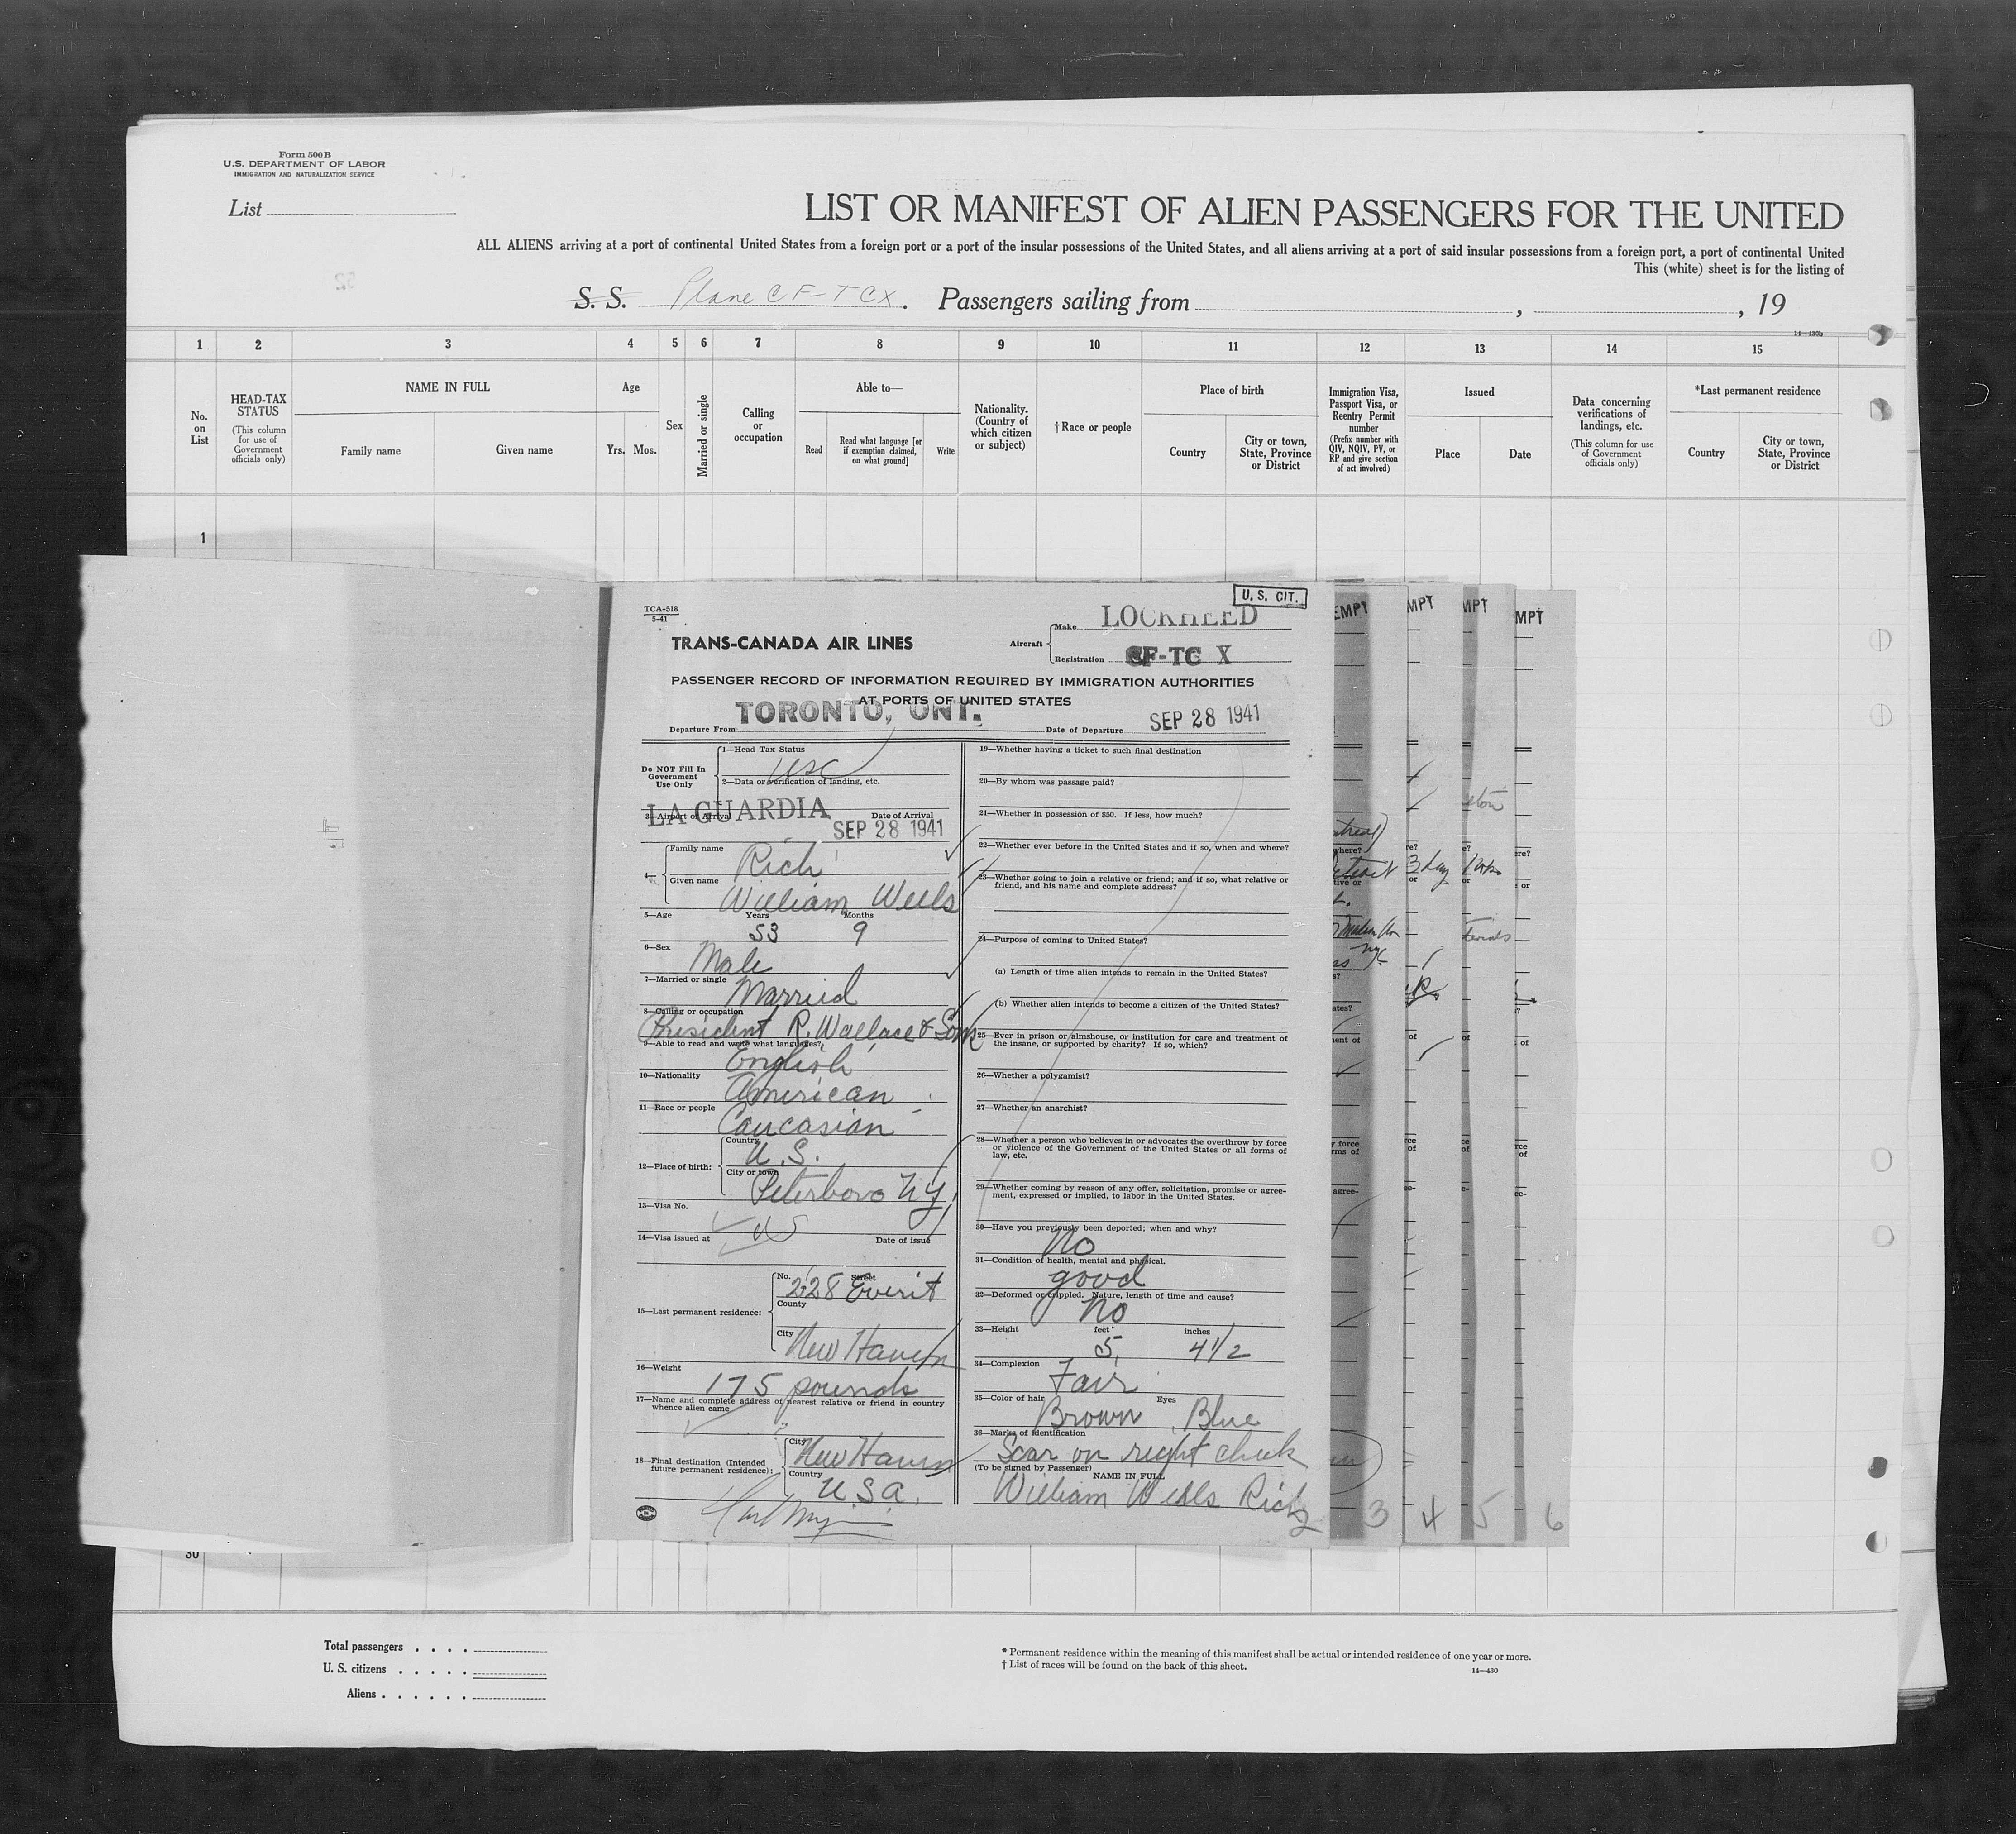 Form 500 B
U.S. DEPARTMENT OF LABOR
IMMIGRATION AND NATURALIZATION SERVICE
List
LIST OR MANIFEST OF ALIEN PASSENGERS FOR THE UNITED
ALL ALIENS arriving at a port of continental United States from a foreign port or a port of the insular possessions of the United States, and all aliens arriving at a port of said insular possessions from a foreign port, a port of continental United
This (white) sheet is for the listing of
S. S. Plane CF-TCX. Passengers sailing from , , 19
14—430b
1 2 3 4 5 6 7 8 9 10 11 12 13 14 15
No. on List
HEAD-TAX STATUS
(This column for use of Government officials only)
NAME IN FULL
Family name
Given name
Age
Yrs. Mos.
Sex
Married or single
Calling or occupation
Able to—
Read
Read what language [or if exemption claimed, on what ground]
Write
Nationality. (Country of which citizen or subject)
†Race or people
Place of birth
Country
City or town, State, Province or District
Immigration Visa, Passport Visa, or Reentry Permit number
(Prefix number with QIV, NQIV, PV, or RP and give section of act involved)
Issued
Place
Date
Data concerning verifications of landings, etc.
(This column for use of Government officials only)
*Last permanent residence
Country
City or town, State, Province or District
1
TCA-518
5-41
U. S. CIT.
TRANS-CANADA AIR LINES
Aircraft
Make LOCKHEED
Registration CF-TC X
PASSENGER RECORD OF INFORMATION REQUIRED BY IMMIGRATION AUTHORITIES
AT PORTS OF UNITED STATES
Departure From TORONTO, ONT. Date of Departure SEP 28 1941
Do NOT Fill In Government Use Only
1—Head Tax Status
USC
2—Data or verification of landing, etc.
3—Airport of Arrival LA GUARDIA
Date of Arrival SEP 28 1941
4—
Family name Rich
Given name William Wells
5—Age Years 53 Months 9
6—Sex Male
7—Married or single Married
8—Calling or occupation
President R. Wallace & Sons
9—Able to read and write what languages?
English
10—Nationality American
11—Race or people Caucasian
12—Place of birth:
Country U.S.
City or town Peterboro N.Y.
13—Visa No.
US
14—Visa issued at Date of issue
15—Last permanent residence:
No. Street 228 Everit
County
City New Haven
16—Weight 175 pounds
17—Name and complete address of nearest relative or friend in country
whence alien came
18—Final destination (Intended
future permanent residence):
City New Haven
Country U.S.A.
19—Whether having a ticket to such final destination
20—By whom was passage paid?
21—Whether in possession of $50. If less, how much?
22—Whether ever before in the United States and if so, when and where?
23—Whether going to join a relative or friend; and if so, what relative or
friend, and his name and complete address?
24—Purpose of coming to United States?
(a) Length of time alien intends to remain in the United States?
(b) Whether alien intends to become a citizen of the United States?
25—Ever in prison or almshouse, or institution for care and treatment of
the insane, or supported by charity? If so, which?
26—Whether a polygamist?
27—Whether an anarchist?
28—Whether a person who believes in or advocates the overthrow by force
or violence of the Government of the United States or all forms of
law, etc.
29—Whether coming by reason of any offer, solicitation, promise or agree-
ment, expressed or implied, to labor in the United States.
30—Have you previously been deported; when and why?
No
31—Condition of health, mental and physical.
good
32—Deformed or crippled. Nature, length of time and cause?
No
33—Height feet 5 inches 4 1/2
34—Complexion Fair
35—Color of hair Brown Eyes Blue
36—Marks of identification
Scar on right cheek
(To be signed by Passenger)
NAME IN FULL
William Wells Rich
2 3 4 5 6
30
Total passengers
U. S. citizens
Aliens
* Permanent residence within the meaning of this manifest shall be actual or intended residence of one year or more.
† List of races will be found on the back of this sheet.
14—430